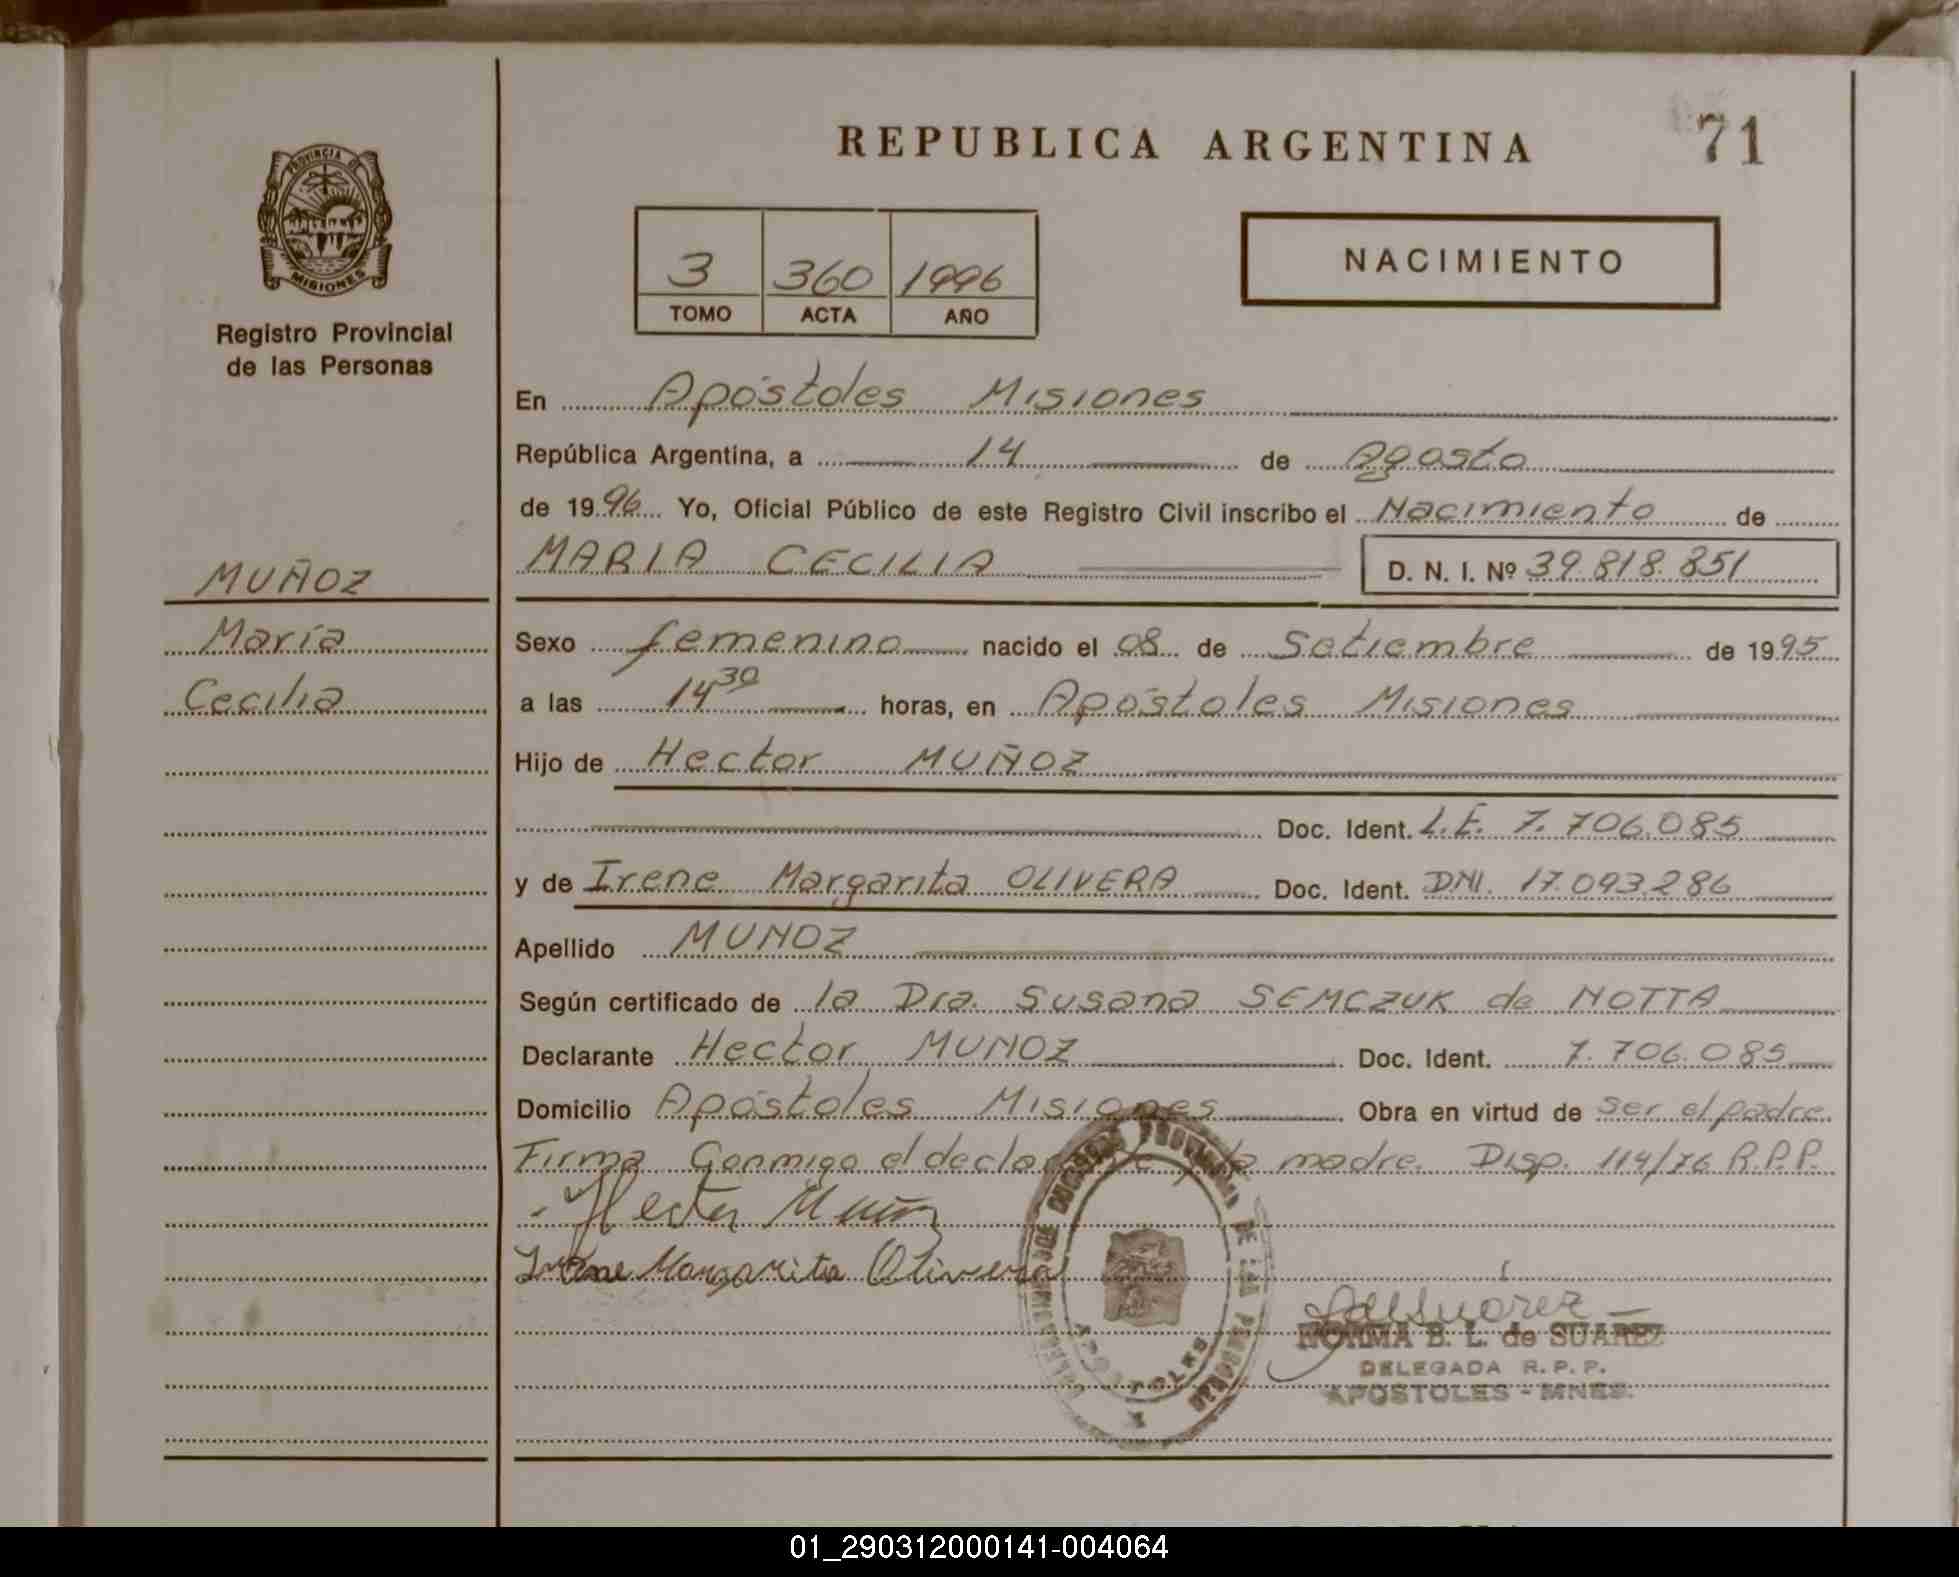 REPUBLICA ARGENTINA
71
PROVINCIA DE
MISIONES
Registro Provincial
de las Personas
3 360 1996
TOMO ACTA AÑO
NACIMIENTO
En Apóstoles Misiones
República Argentina, a 14 de Agosto
de 1996 Yo, Oficial Público de este Registro Civil inscribo el Nacimiento de
MARIA CECILIA D. N. I. Nº 39.818.851
MUÑOZ
María
Cecilia
Sexo femenino nacido el 08 de Setiembre de 1995
a las 14 30 horas, en Apóstoles Misiones
Hijo de Hector MUÑOZ
Doc. Ident. L.E. 7.706.085
y de Irene Margarita OLIVERA Doc. Ident. DNI. 17.093.286
Apellido MUÑOZ
Según certificado de la Dra. Susana SEMCZUK de NOTTA
Declarante Hector MUÑOZ Doc. Ident. 7.706.085
Domicilio Apóstoles Misiones Obra en virtud de ser el padre.
Firma Conmigo el declarante y la madre. Disp. 114/76 R.P.P.
Hector Muñoz
Irene Margarita Olivera
DE LA
APOSTOLES
NORMA B. L. de SUAREZ
DELEGADA R. P. P.
APOSTOLES - MNES.
01_290312000141-004064